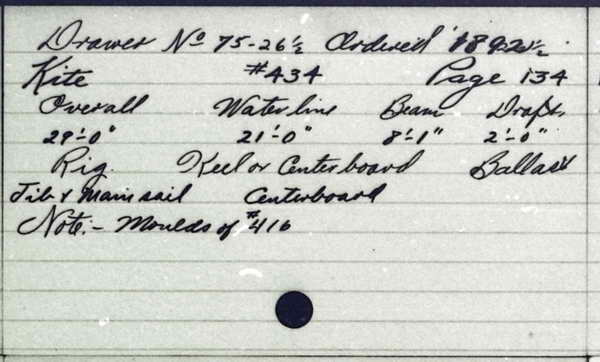 Drawer No 75-26½ Ordered 1892½
Kite #434 Page 134
Overall Waterline Beam Draft.
29'-0" 21'-0" 8'-1" 2'-0"
Rig. Keel or Centerboard Ballast
Jib & Mainsail Centerboard
Note:- Moulds of #416